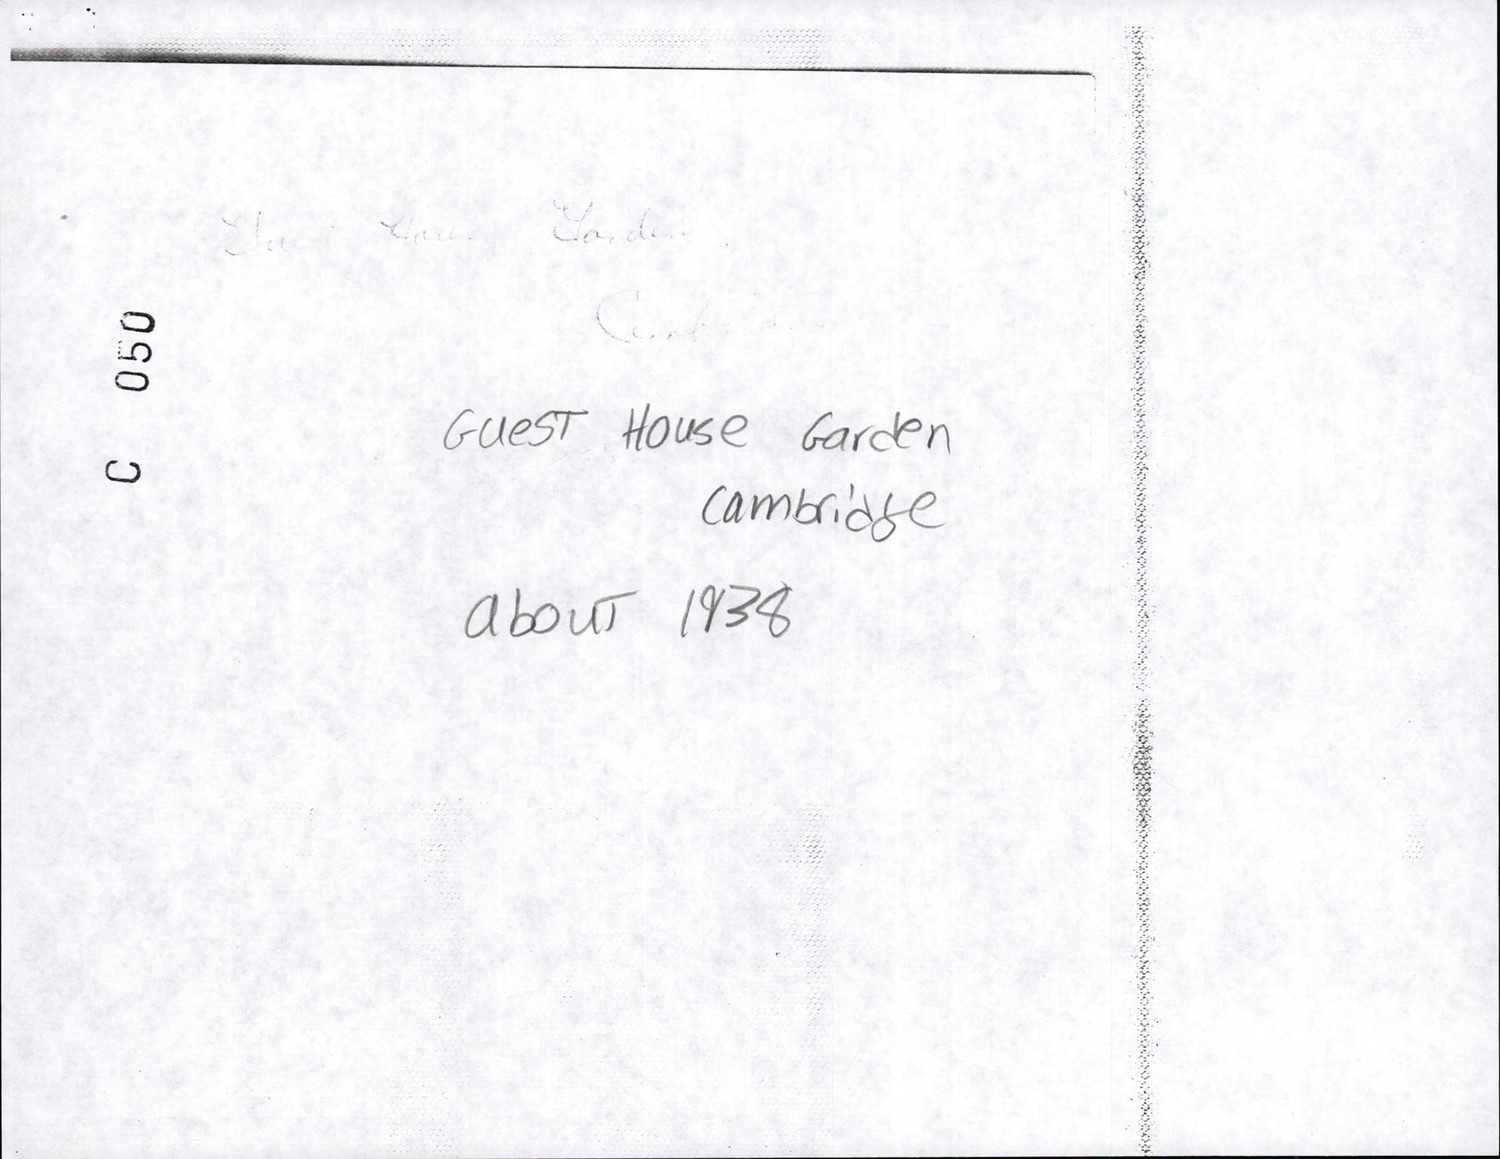 Guest House Garden
C 050
Guest House Garden
Cambridge
about 1938